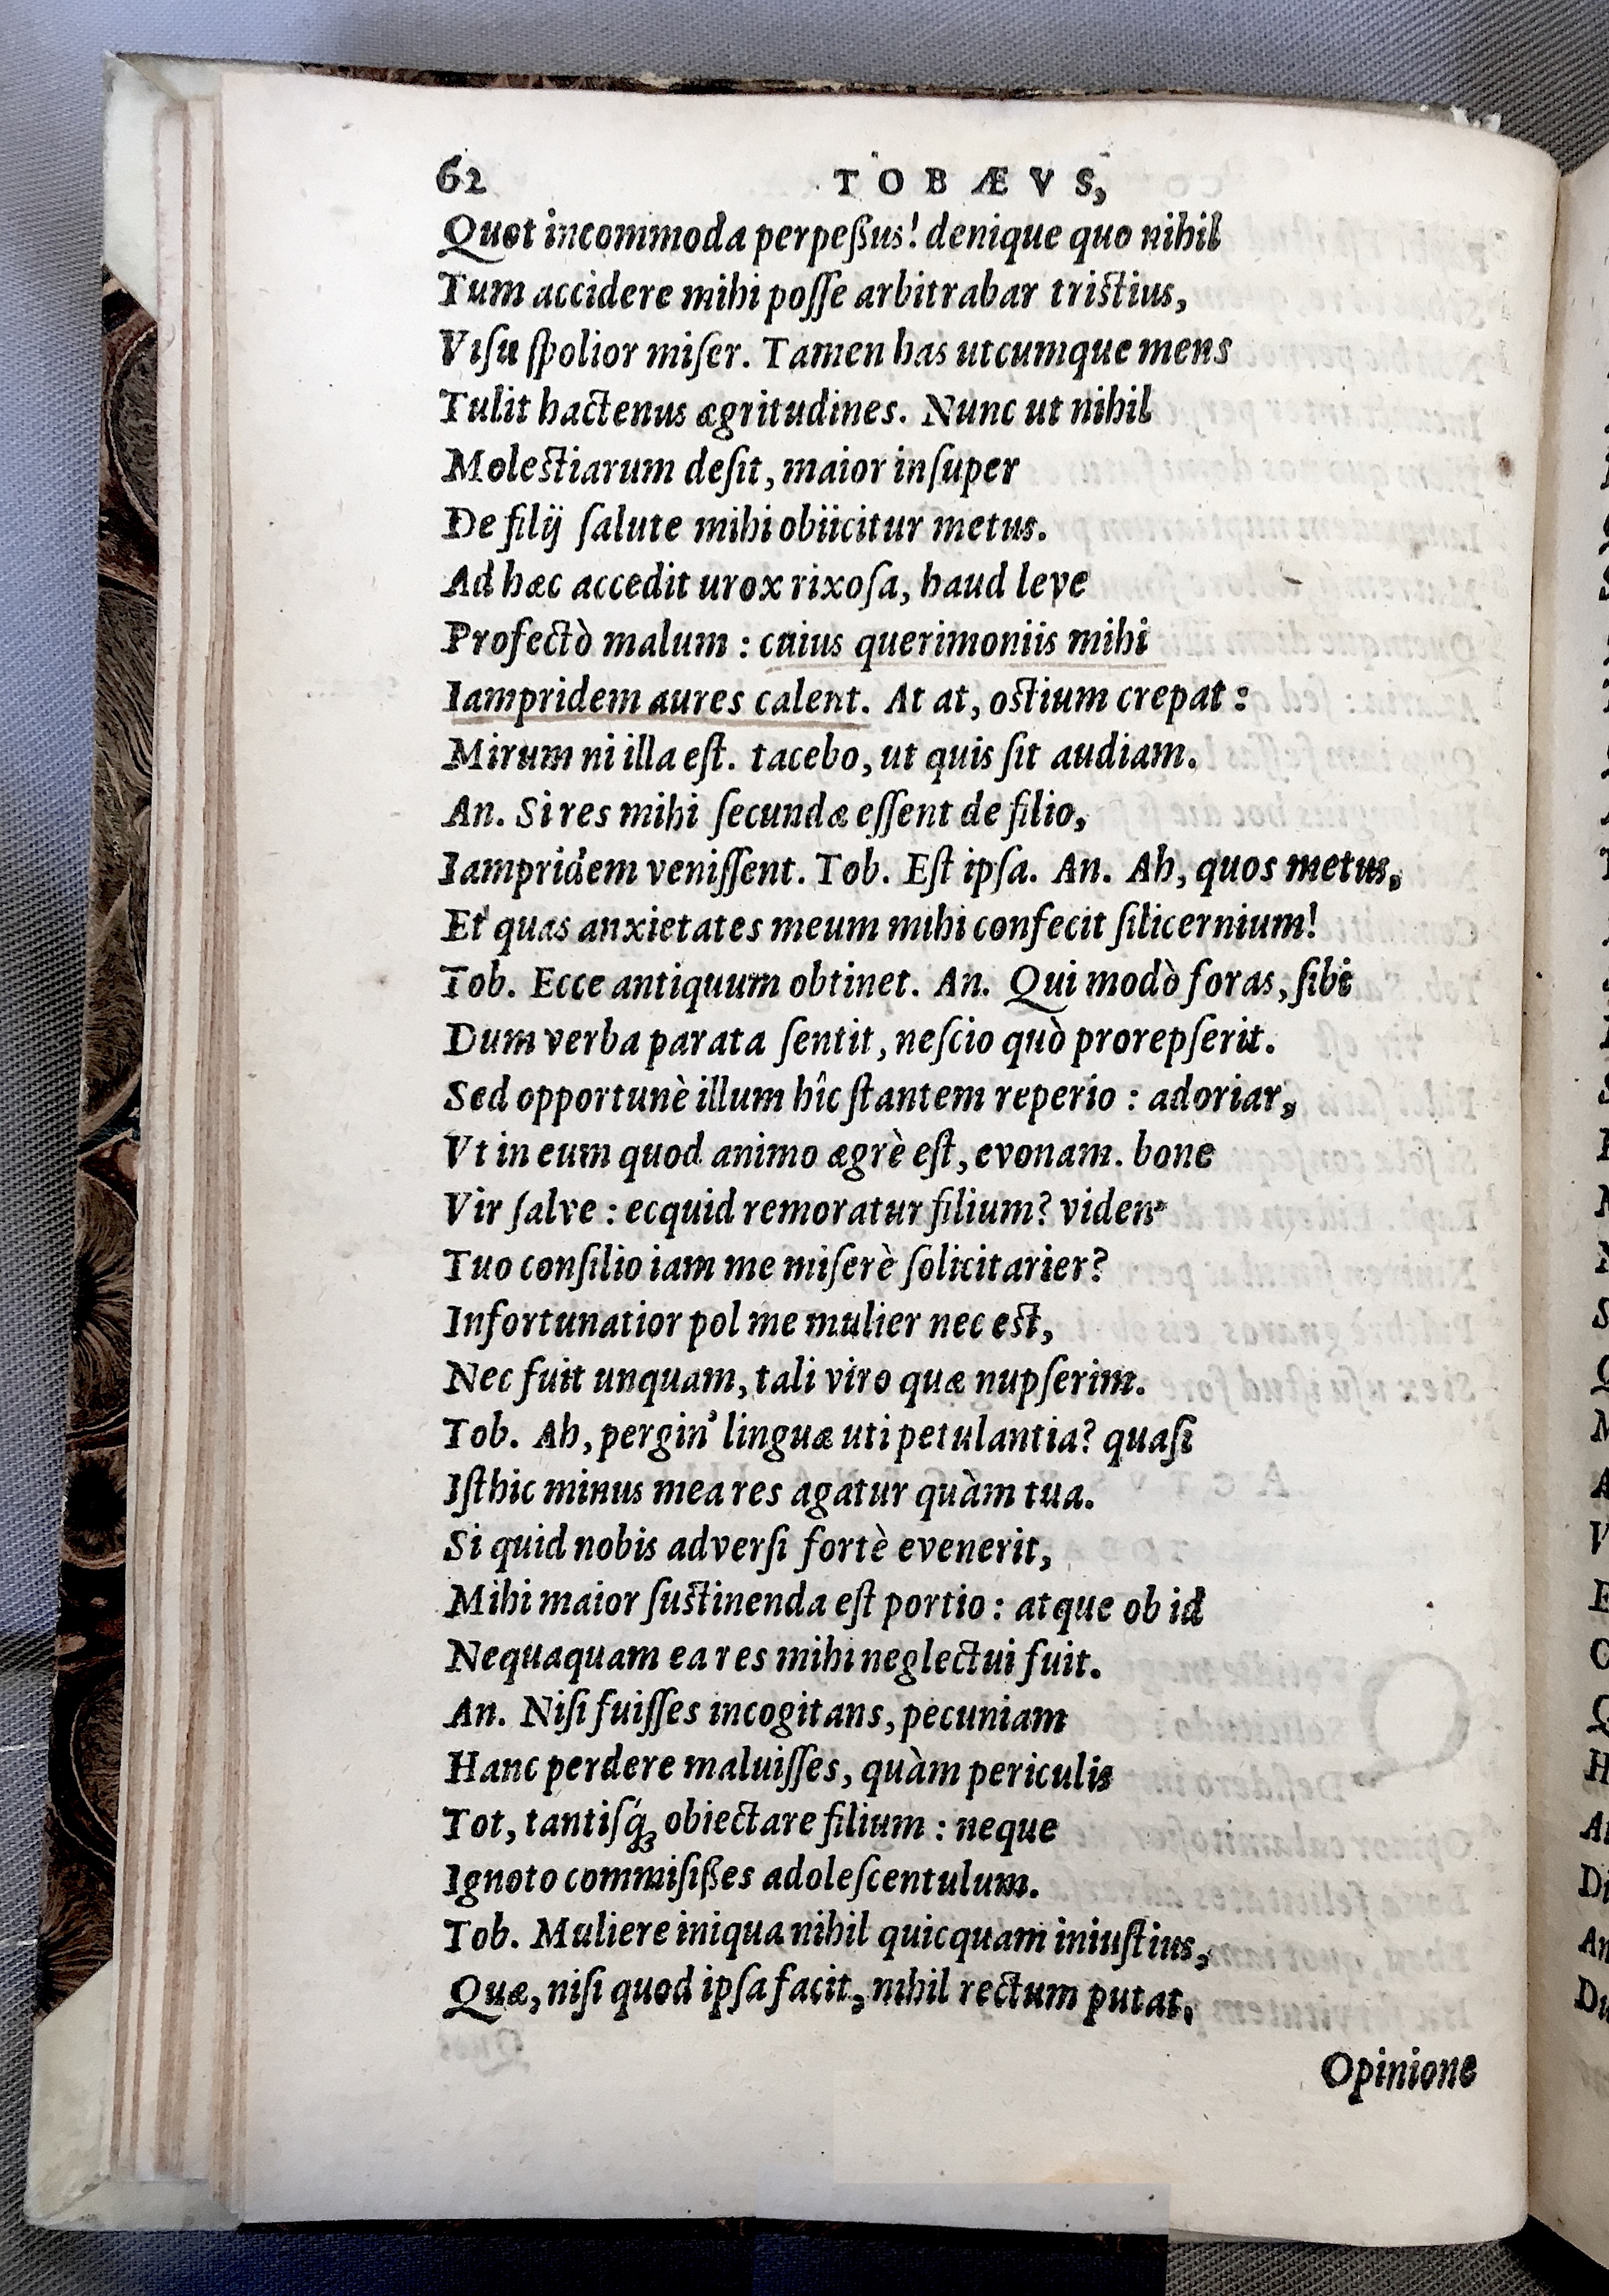 62 TOBÆVS,
Quot incommoda perpeßus! denique quo nihil
Tum accidere mihi poſſe arbitrabar tristius,
Viſu ſpolior miſer. Tamen has utcumque mens
Tulit hactenus ægritudines. Nunc ut nihil
Molestiarum deſit, maior inſuper
De filij ſalute mihi obiicitur metus.
Ad hæc accedit urox rixoſa, haud leve
Profectò malum : cuius querimoniis mihi
Iampridem aures calent. At at, ostium crepat :
Mirum ni illa eſt. tacebo, ut quis ſit audiam.
An. Si res mihi ſecundæ eſſent de filio,
Iampridem veniſſent. Tob. Eſt ipſa. An. Ah, quos metus,
Et quas anxietates meum mihi confecit ſilicernium!
Tob. Ecce antiquum obtinet. An. Qui modò foras, ſibi
Dum verba parata ſentit, neſcio quò prorepſerit.
Sed opportunè illum hîc ſtantem reperio : adoriar,
Vt in eum quod animo ægrè eſt, evonam. bone
Vir ſalve : ecquid remoratur filium? viden'
Tuo conſilio iam me miſerè ſolicitarier?
Infortunatior pol me mulier nec est,
Nec fuit unquam, tali viro quæ nupſerim.
Tob. Ah, pergin' linguæ uti petulantia? quaſi
Iſthic minus mea res agatur quàm tua.
Si quid nobis adverſi fortè evenerit,
Mihi maior ſustinenda eſt portio : atque ob id
Nequaquam ea res mihi neglectui fuit.
An. Niſi fuiſſes incogitans, pecuniam
Hanc perdere maluiſſes, quàm periculis
Tot, tantiſq́ꝫ obiectare filium : neque
Ignoto commiſißes adoleſcentulum.
Tob. Muliere iniqua nihil quicquam iniuſtius,
Quæ, niſi quod ipſa facit, nihil rectum putat,
Opinione